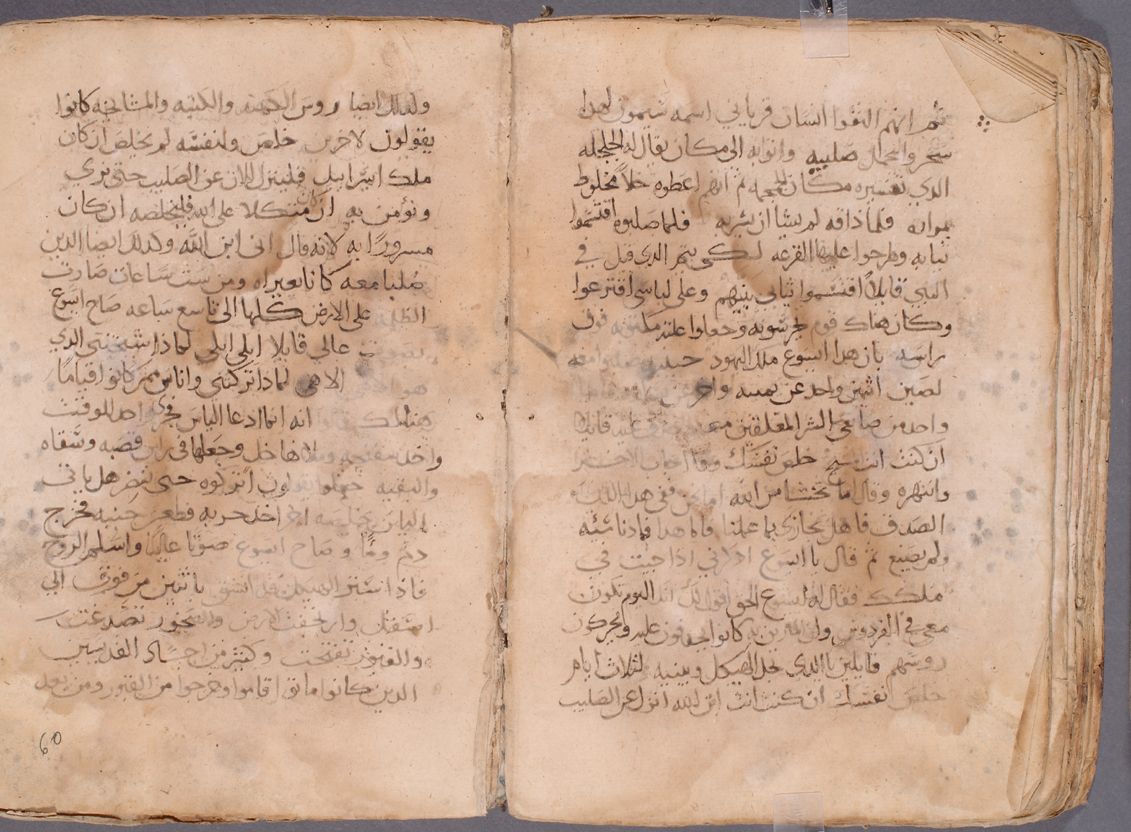 ثم انهم التقوا انسان قرياني اسمه شيمون لهدا
سخروا لحمل صليبه واتوا به الى مكان يقال له الجلجله
الدي تفسيره مكان الجمجمه ثم انهم اعطوه خلاً مخلوط
بمراره فلما داقه لم يشا ان يشربه فلما صلبوه اقتسموا
ثيابه وطرحوا عليها القرعه لكي يتم الدي قيل في
النبي قايلاً اقتسموا ثيابي بينهم وعلى لباسي اقترعوا
وكان هناك قوم يحرسونه وجعلوا عند فوق
راسه بان هدا ايسوع ملك اليهود حينيد صلبوا معه
لصين اثنين واحد عن يمينه واخر عن
واحد من صانعي الشر المعلقين معه عليه قايلاً
ان كنت انت المسيح خلص نفسك واجاب الاخر
وانتهره وقال ما تخشا من الله اما نحن ففي هدا
الصدف فاهل نجازى بما عملنا فاما هدا فادنا شيه
ولم يصنع ثم قال يا ايسوع ادكرني ادا جيت في
ملكك فقال له ايسوع الحق اقول لك انك اليوم تكون
معي في الفردوس وان المارين به كانوا يجدفون عليه ويحركون
روسهم قايلين يا الدي حل الهيكل وبنيه لثلاث ايام
خلص نفسك ان كنت انت ابن الله انزل عن الصليب
وكدلك ايضا روس الكهنه والكتبه والمشايخه كانوا
يقولون لاخرين خلص ولنفسه لم يخلص ان كان
ملك اسراييل فلينزل الان عن الصليب حتى نرى
ونؤمن به ان كان متكلا على الله فليخلصه ان كان
مسرورًا به لانه قال اني ابن الله وكدلك ايضا الدين
صلبا معه كانا يعيراه ومن ست ساعات صارت
الظلمه على الارض كلها الى تاسع ساعه صاح ايسوع
بصوت عالي قايلا ايلي ايلي لمادا شبختني الدي
هو الاهي لمادا تركتني واناس ممن كانوا قيامًا
هنالك قالوا انه انما دعا الياس فجرى احد للوقت
واخد سفنجه وملاها خل وجعلها في راس قصبه وسقاه
والبقيه يقولون اتركوه حتى ننظر هل ياتي
الياس يخلصه اخر اخد حربه فطعن جنبه فخرج
دم وما وصاح ايسوع صوتًا عاليًا واسلم الروح
فادا ستر الهيكل قد انشق باثنين من فوق الى
اسفل وارتجفت الارض والصخور تصدعت
والقبور تفتحت وكثير من اجساد القديسين
الدين كانوا ماتوا قاموا وخرجوا من القبور ومن بعد
60